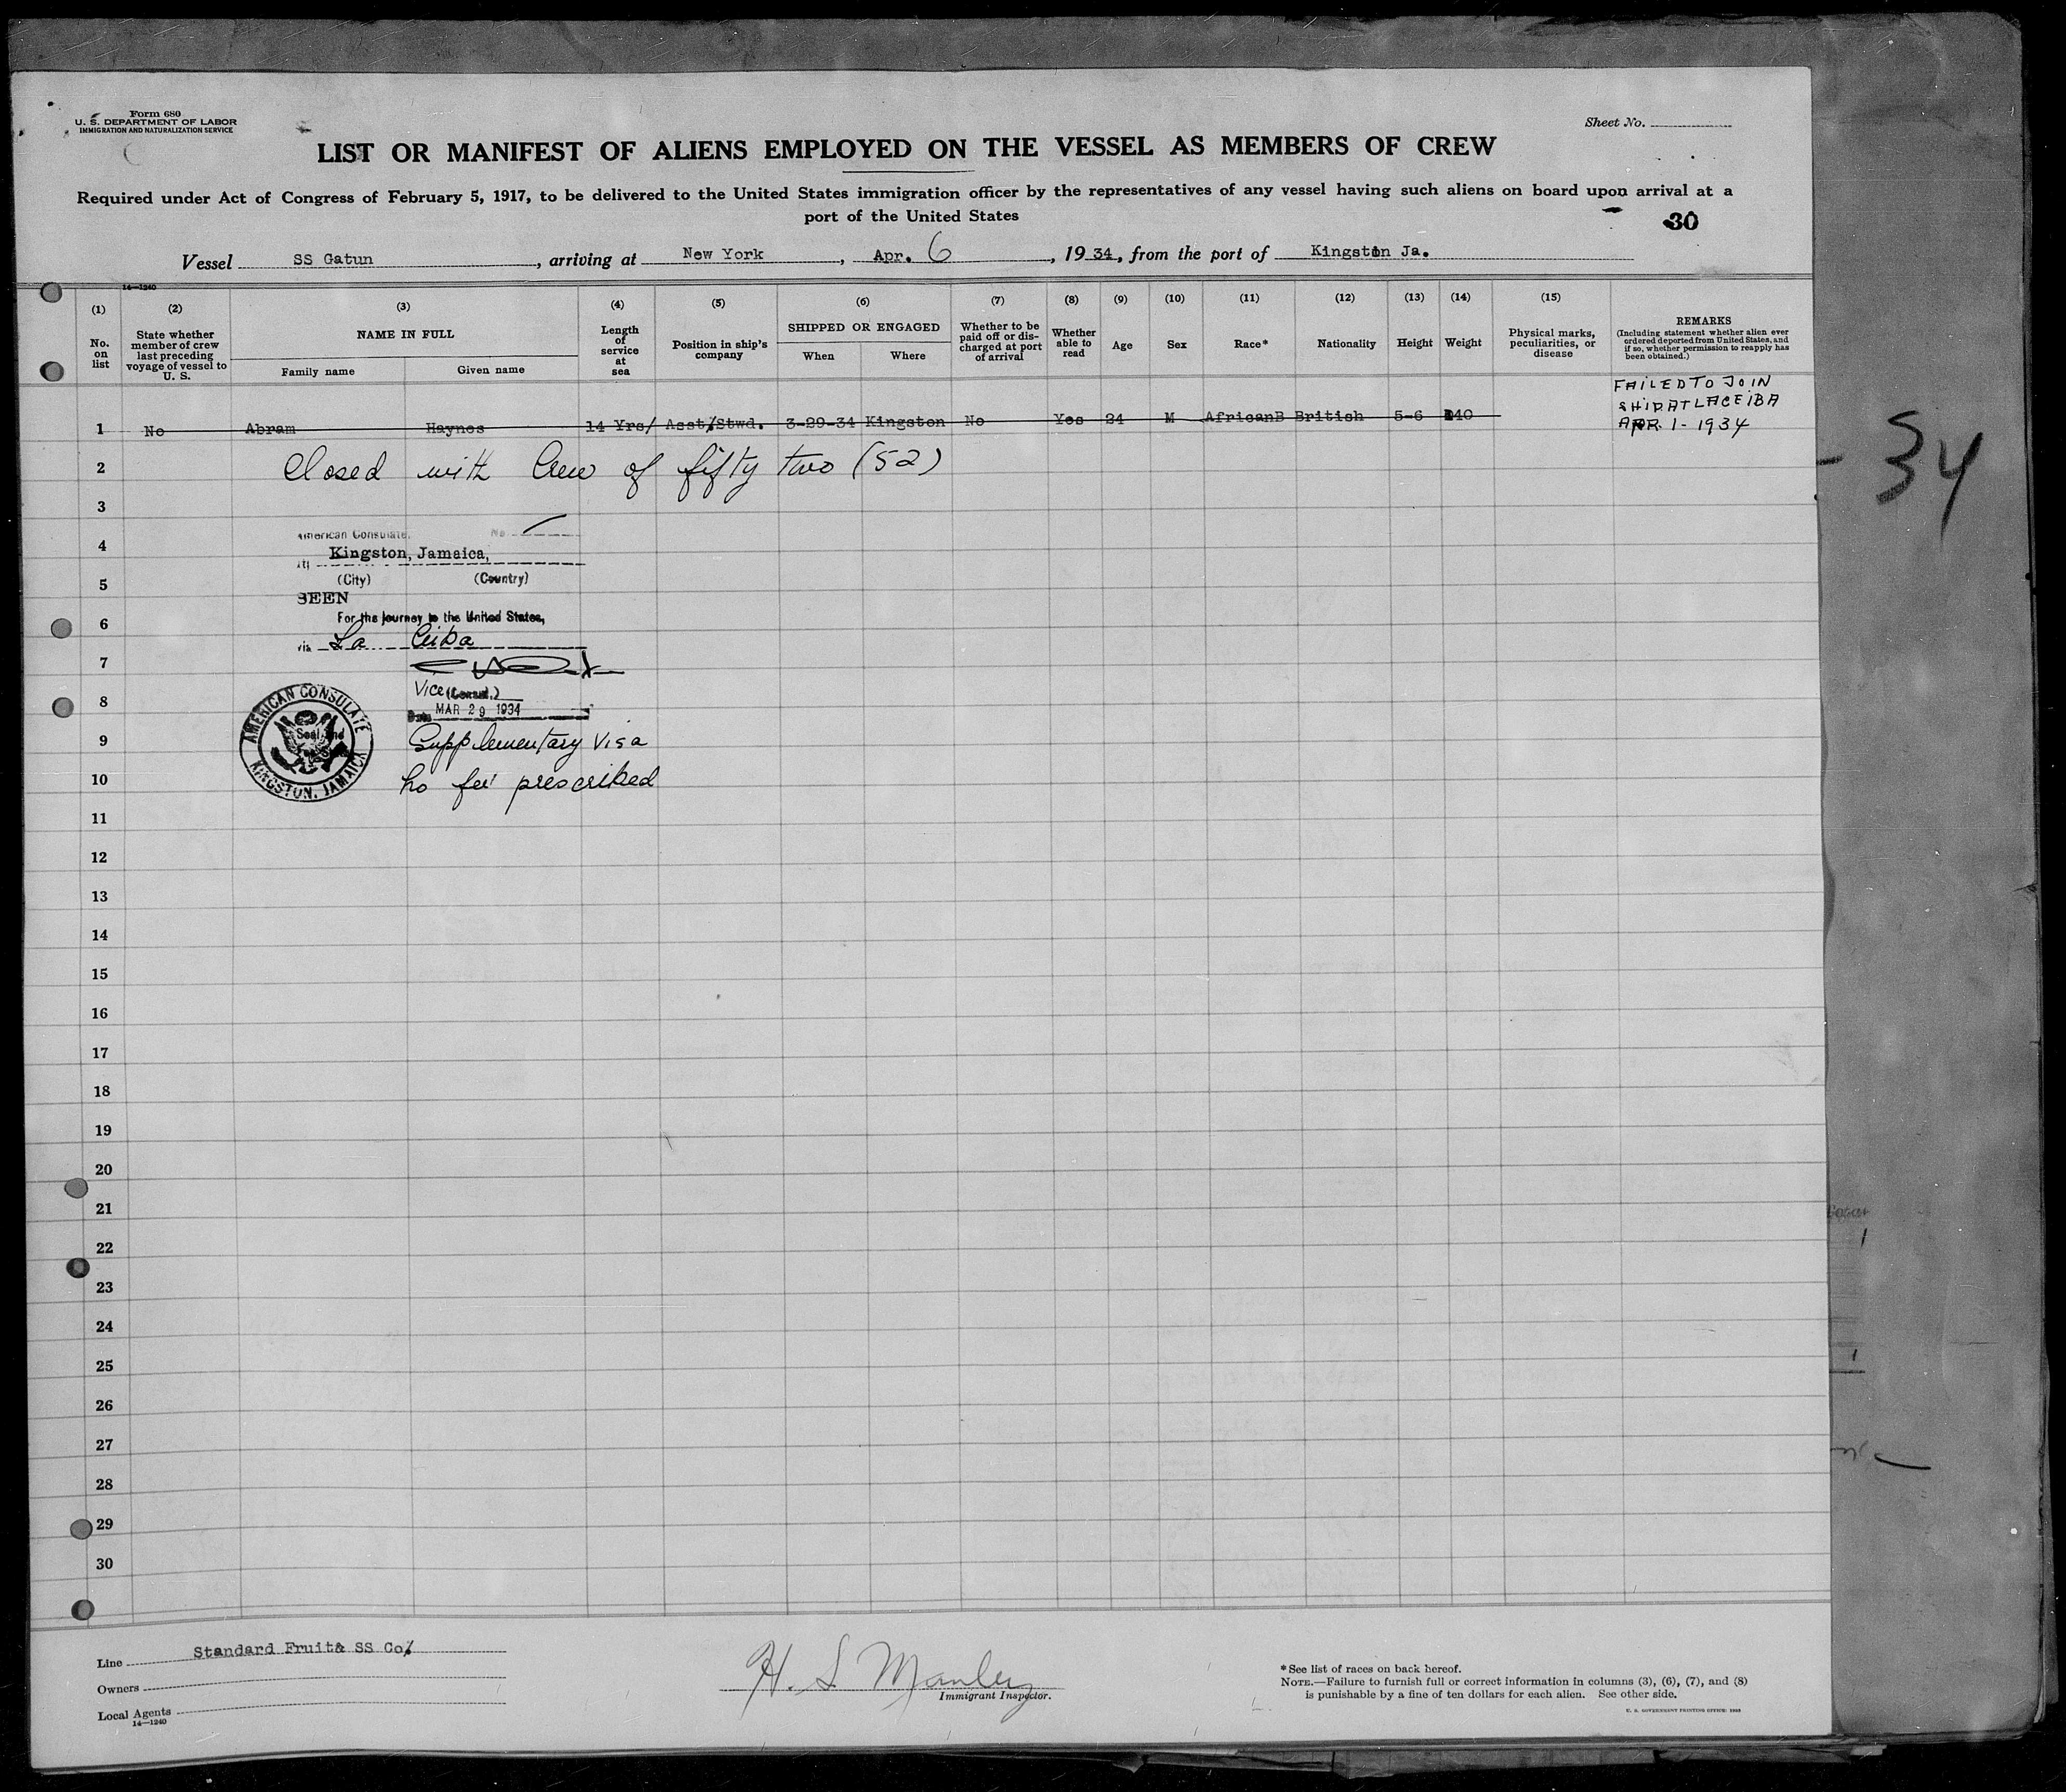 Form 680
U. S. DEPARTMENT OF LABOR
IMMIGRATION AND NATURALIZATION SERVICE
Sheet No.
LIST OR MANIFEST OF ALIENS EMPLOYED ON THE VESSEL AS MEMBERS OF CREW
Required under Act of Congress of February 5, 1917, to be delivered to the United States immigration officer by the representatives of any vessel having such aliens on board upon arrival at a
port of the United States
30
Vessel SS Gatun, arriving at New York, Apr. 6, 1934, from the port of Kingston Ja.
14—1240
(1) (2) (3) (4) (5) (6) (7) (8) (9) (10) (11) (12) (13) (14) (15)
No. on list
State whether member of crew last preceding voyage of vessel to U. S.
NAME IN FULL
Family name Given name
Length of service at sea
Position in ship's company
SHIPPED OR ENGAGED
When Where
Whether to be paid off or discharged at port of arrival
Whether able to read
Age
Sex
Race*
Nationality
Height
Weight
Physical marks, peculiarities, or disease
REMARKS
(Including statement whether alien ever ordered deported from United States, and if so, whether permission to reapply has been obtained.)
FAILED TO JOIN
SHIP AT LACEIBA
APR. 1 - 1934
1 No Abram Haynes 14 Yrs/ Asst/Stwd. 3-29-34 Kingston No Yes 24 M AfricanB British 5-6 140
2 Closed with Crew of fifty two (52)
34
3
4
American Consulate, No.
Kingston, Jamaica,
5
(City) (Country)
SEEN
6
For the journey to the United States,
via La Ceiba
7
Vice (Consul.)
8
Date MAR 29 1934
AMERICAN CONSULATE
KINGSTON, JAMAICA
9 Supplementary Visa
10 no fee prescribed
11
12
13
14
15
16
17
18
19
20
21
22
23
24
25
26
27
28
29
30
Line Standard Fruit& SS Co/
Owners
Local Agents
14—1240
H. S. Manley
Immigrant Inspector.
*See list of races on back hereof.
NOTE.—Failure to furnish full or correct information in columns (3), (6), (7), and (8)
is punishable by a fine of ten dollars for each alien. See other side.